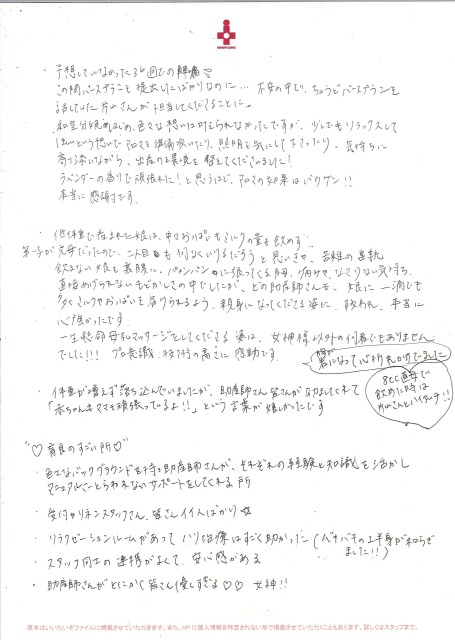 ・予想していなかった36週での陣痛
この間バースプランを提出したばかりなのに… 不安の中で、ちょうどバースプランを
話していた片山さんが担当してくださることに。
和室分娩をはじめ、色々な想いは叶えられなかったですが、少しでもリラックスして
ほしいという想いで アロマを準備頂いたり、照明を気にして下さったり、気持ちに
寄り添いながら、出産の環境を整えてくださいました！
ラベンダーの香りで頑張れた！と思うほど、アロマの効果はバツグン!!
本当に感謝です。
・低体重で産まれた娘は、中々おっぱいもミルクの量も飲めず…
第一子が完母だったので、二人目も何なくいけるだろうと思いきや、苦難の連続
飲まない娘を裏腹に、パンパンに張ってくる胸、痛みや、なさけない気持ち、
直接あげられないもどかしさの中でしたが、どの助産師さんも、娘に一滴でも
多くミルクやおっぱいを届けられるよう、親身になってくださる姿に、救われ、本当に
心強かったです。
一生懸命母乳マッサージをしてくださる姿は、女神様以外の何者でもありません
でした!!! プロ意識、技術の高さに感動です。
・体重が増えず落ち込んでいましたが、助産師さん皆さんが励ましてくれて
「赤ちゃんもママも頑張っているよ!!」という言葉が嬉しかったです
心折れかけてました
8cc直母で
飲めた時は
片山さんとハイタッチ!!
"♡育良のすごい所♡"
・色々なバックグラウンドを持つ助産師さんが、それぞれの経験と知識を活かし
マニュアルにとらわれないサポートをしてくれる所
・受付やリネンスタッフさん、皆さんイイ人ばかり☆
・リラクゼーションルームがあって ハリ治療はすごく助かった（バキバキの上半身が和らぎ
ました!!）
・スタッフ同士の連携がよくて、安心感がある
・助産師さんがとにかく皆さん優しすぎる♡♡ 女神!!
原本はいいたいぞファイルに掲載させていただきます。また、HPに個人情報を特定されない形で掲載させていただくこともあります。詳しくはスタッフまで。